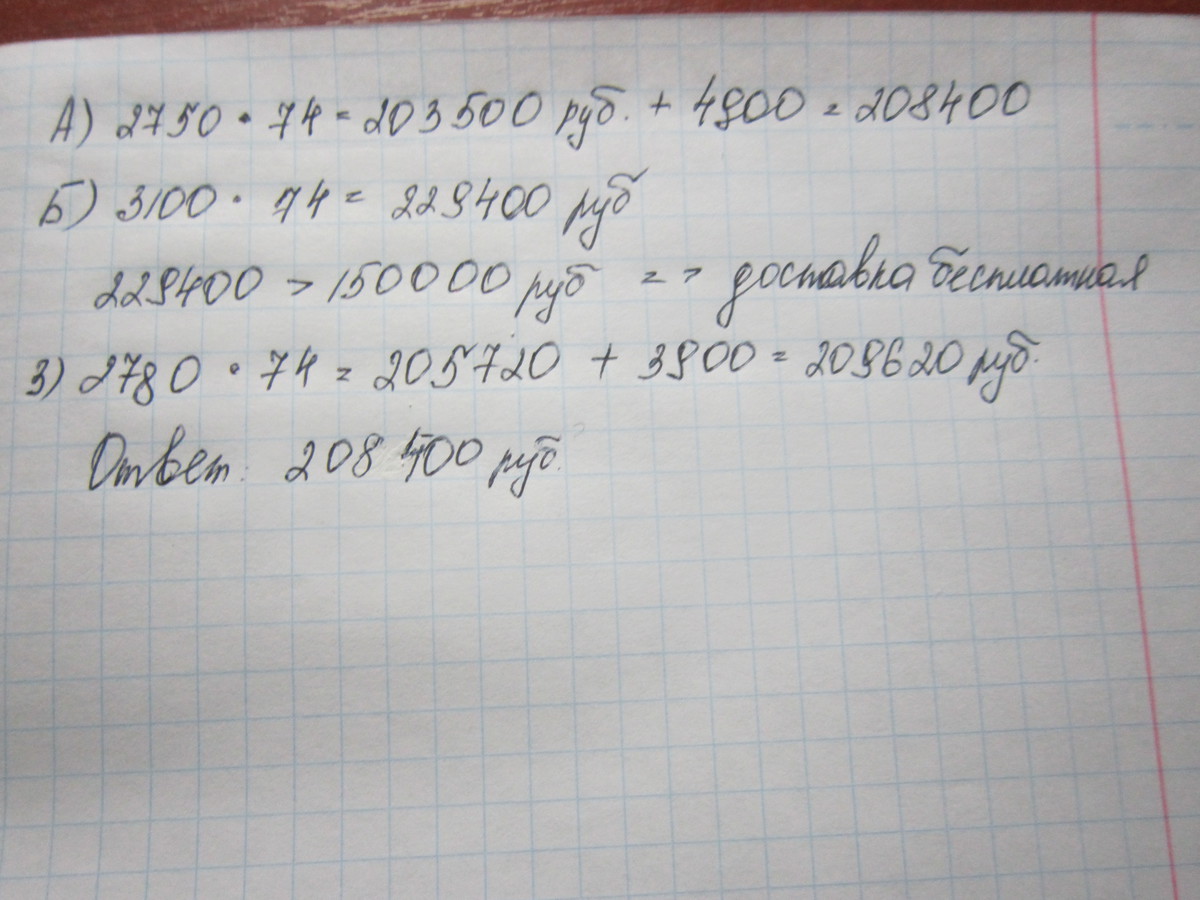 А) 2750 · 74 = 203500 руб. + 4900 = 208400
Б) 3100 · 74 = 229400 руб
229400 > 150000 руб => доставка бесплатная
3) 2780 · 74 = 205720 + 3900 = 209620 руб.
Ответ: 208400 руб.